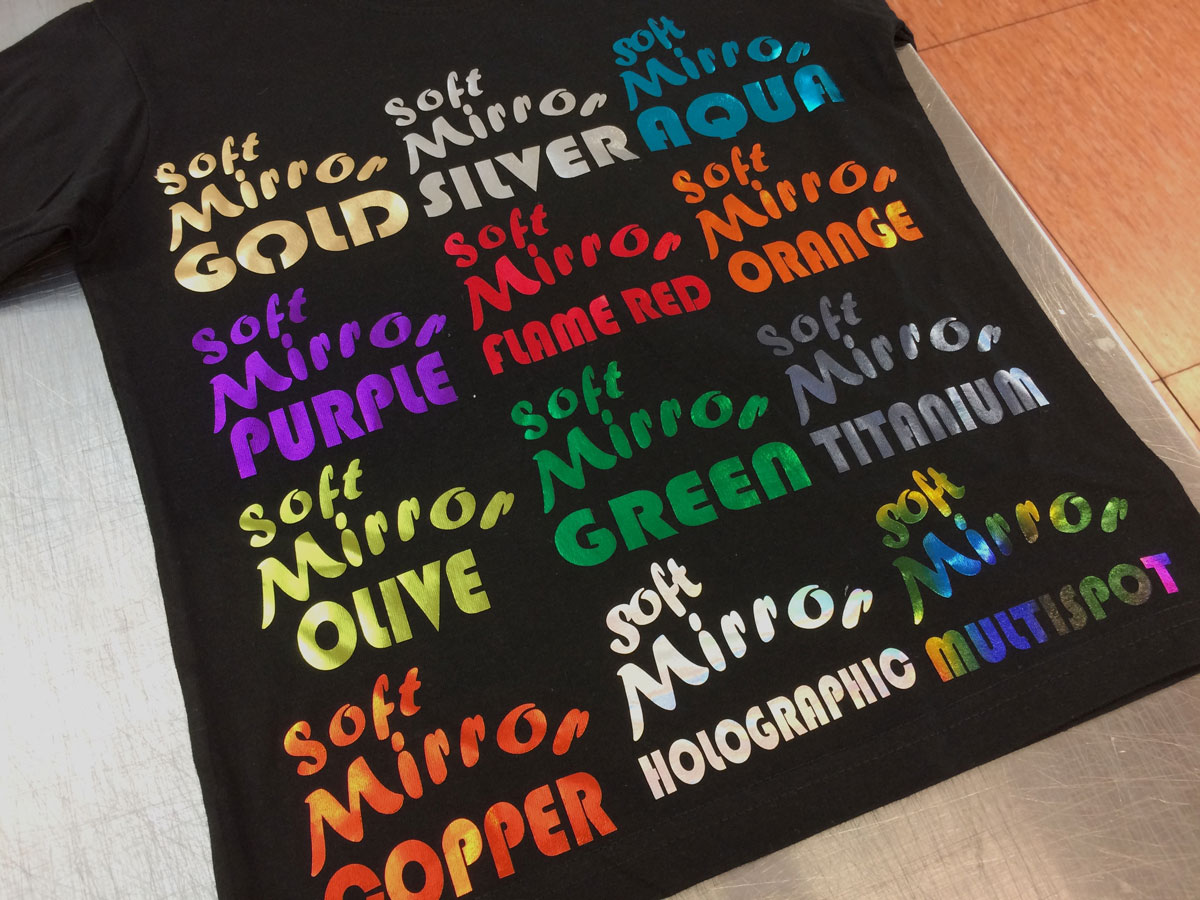 Soft
Mirror
GOLD
Soft
Mirror
SILVER
Soft
Mirror
AQUA
Soft
Mirror
PURPLE
Soft
Mirror
FLAME RED
Soft
Mirror
ORANGE
Soft
Mirror
OLIVE
Soft
Mirror
GREEN
Soft
Mirror
TITANIUM
Soft
Mirror
COPPER
Soft
Mirror
HOLOGRAPHIC
Soft
Mirror
MULTISPOT